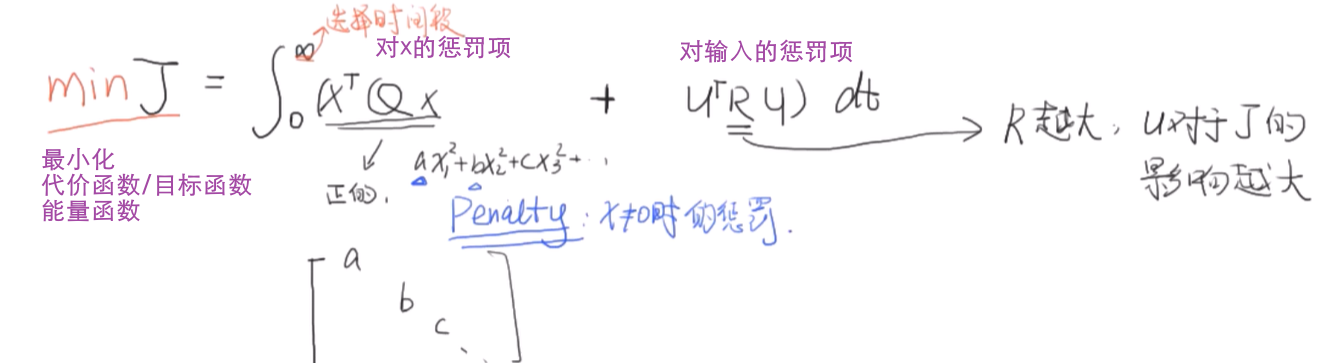 选择时间段
对x的惩罚项
对输入的惩罚项
min J = ∫₀^∞ (xᵀQx + uᵀRu) dt
R越大,u对于J的
影响越大
最小化
代价函数/目标函数
能量函数
正的, ax₁²+bx₂²+cx₃²+...
Penalty: x≠0时的惩罚.
a
b
c